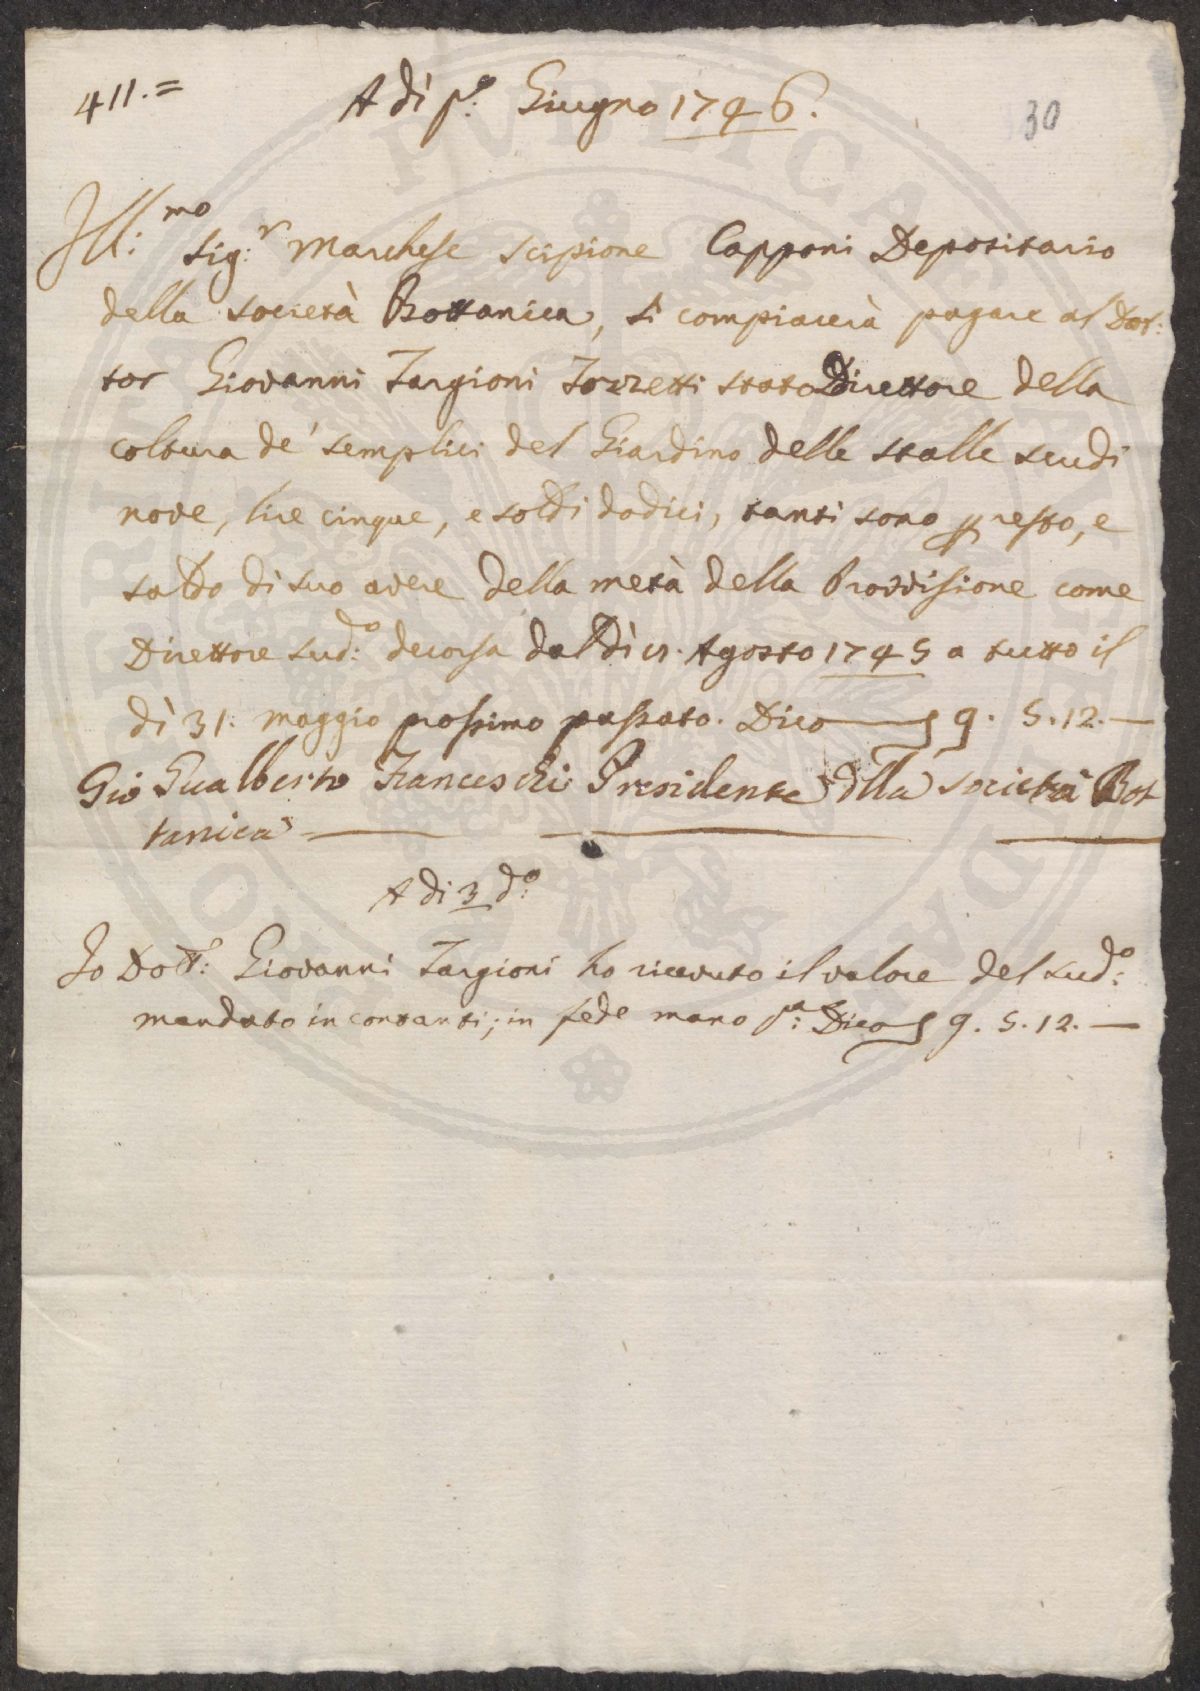 411.=
A dì p.º Giugno 1746.
30
Ill:mo Sig:r Marchese Scipione Capponi Depositario
della Società Bottanica, si compiacerà pagare al Dot:
tor Giovanni Targioni Tozzetti stato Direttore della
coltura de' semplici del Giardino delle stalle scudi
nove, lire cinque, e soldi dodici, tanti sono p resto, e
saldo di suo avere della metà della Provvisione come
Direttore sud:º decorsa dal dì Agosto 1745 a tutto il
dì 31. maggio prossimo passato. Dico 9. 5. 12.—
Gio Gualberto Franceschi Presidente dlla Società Bot
tanica
A di 3 d:º
Io Dott: Giovanni Targioni ho ricevuto il valore del sud:º
mandato in contanti; in fede mano p:a Dico 9. 5. 12.—
PVBLICAE